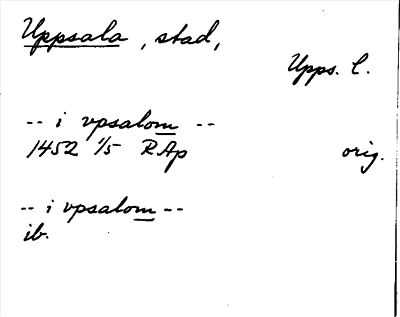 Uppsala, stad,
Upps. l.
-- i vpsalom --
1452 1/5 RAp orig.
-- i vpsalom --
ib.